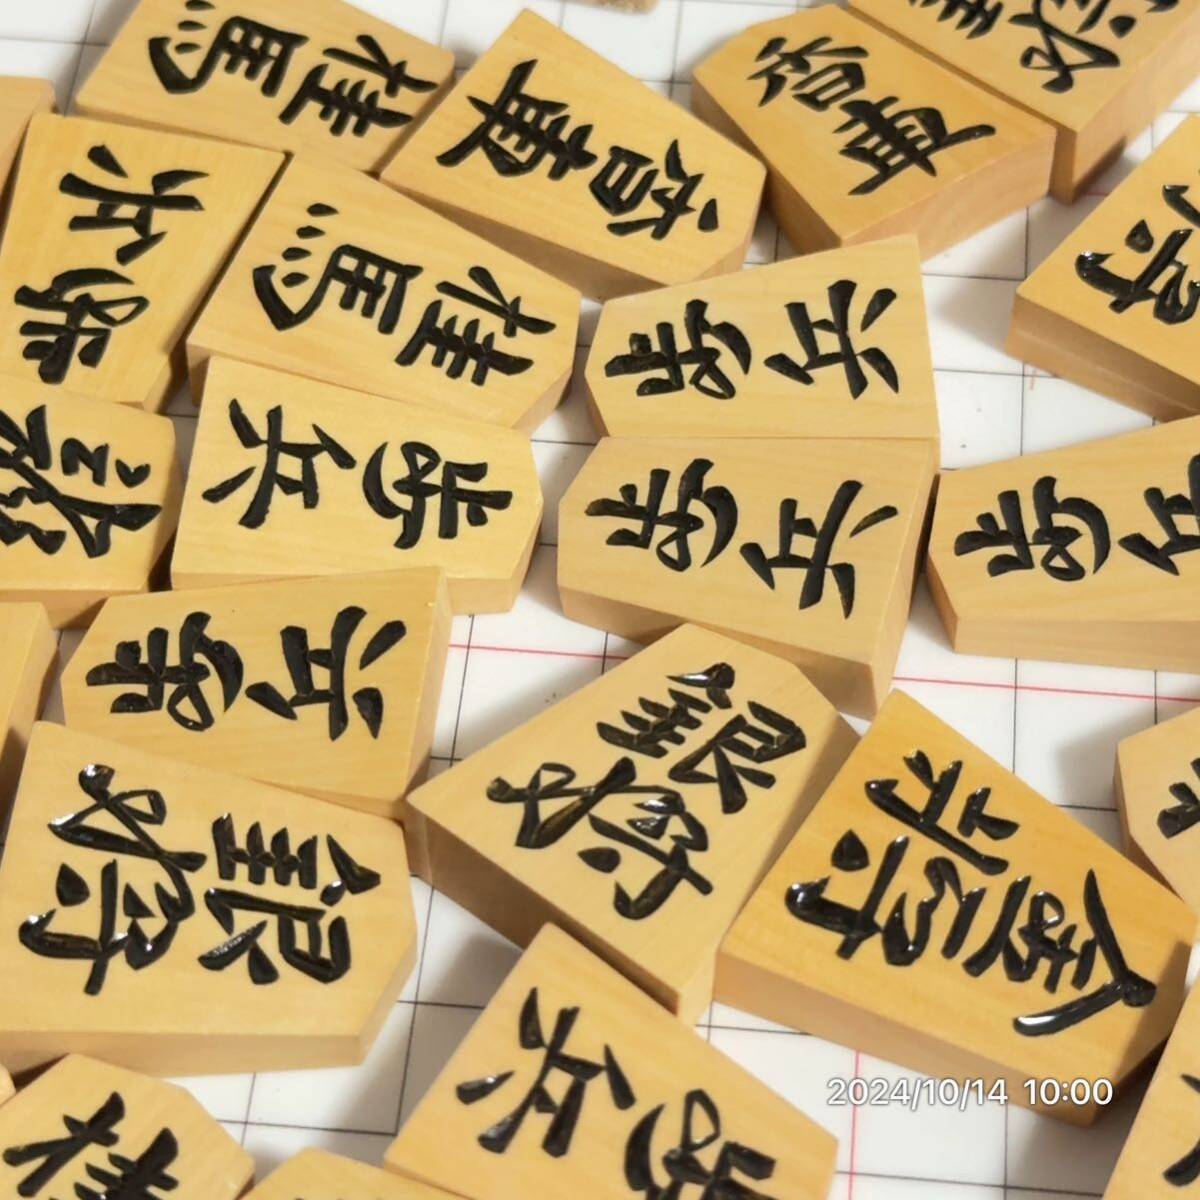 桂馬
香車
香車
歩兵
桂馬
歩兵
歩兵
歩兵
歩兵
歩兵
歩兵
銀将
銀将
金将
歩兵
桂
2024/10/14 10:00